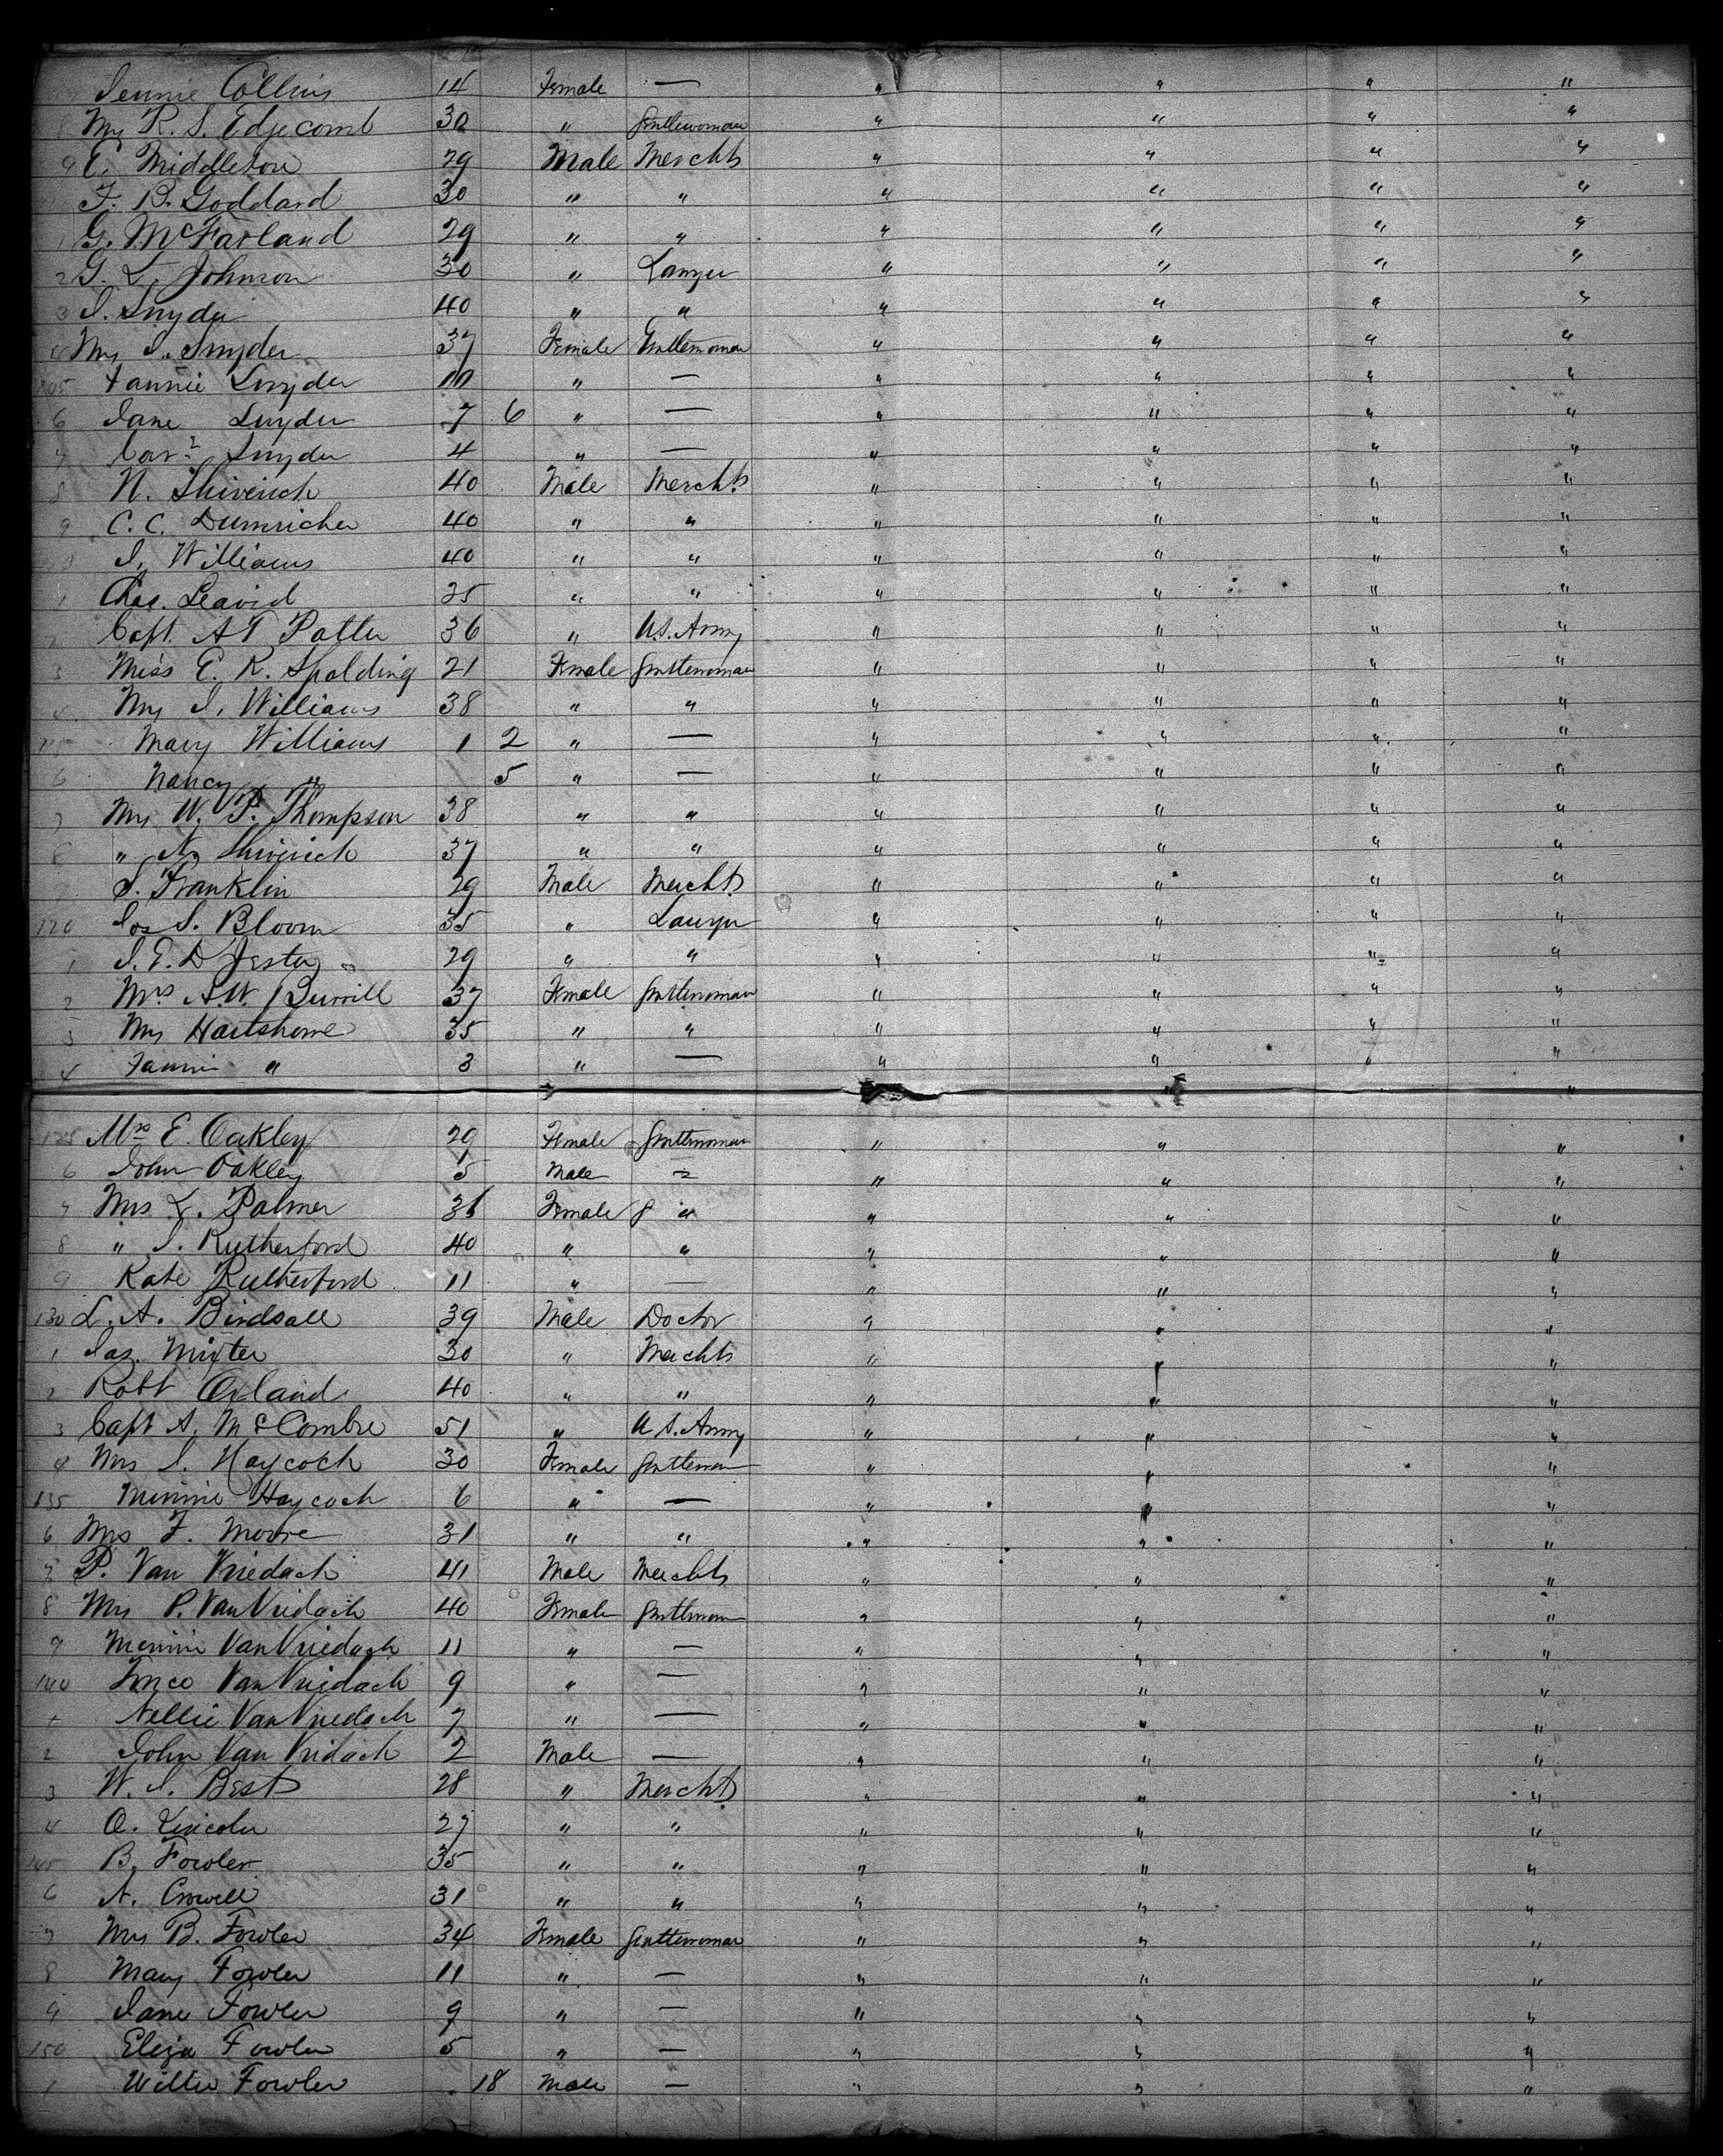 Jennie Collins 14 Female — " " " "
8 Mrs R. S. Edgecomb 30 " Gentlewoman " " " "
9 C. Middleton 29 Male Merchts " " " "
F. B. Goddard 30 " " " " " "
1 G. McFarland 29 " " " " " "
2 G. L. Johnson 30 " Lawyer " " " "
3 J. Snyder 40 " " " " " "
4 Mrs J. Snyder 37 Female Gentlewoman " " " "
105 Fannie Snyder 10 " — " " " "
6 Jane Snyder 7 6 " — " " " "
7 Snyder 4 " — " " " "
8 N. Shiverick 40 Male Merchts " " " "
9 C. C. 40 " " " " " "
J. Williams 40 " " " " " "
1 Chas. Leavid 25 " " " " " "
2 Capt. A T Potter 36 " U.S. Army " " " "
3 Miss E. K. Spalding 21 Female Gentlewoman " " " "
4 Mrs J. Williams 38 " " " " " "
Mary Williams 1 2 " — " " " "
6 Nancy " 5 " — " " " "
7 Mrs W. P. Thompson 38 " " " " " "
8 " N. Shiverick 37 " " " " " "
S. Franklin 29 Male Mercht " " " "
120 Jos S. Bloom 35 " Lawyer " " " "
1 J. E. D Jester 29 " " " " " "
2 Mrs A. W. Burrill 37 Female Gentlewoman " " " "
3 Mrs Hartshorne 35 " " " " " "
4 Fannie " 3 " — " " " "
125 Mrs E. Oakley 29 Female Gentlewoman " " "
6 John Oakley 5 Male — " " "
7 Mrs L. Palmer 36 Female G " " " "
8 " J. Rutherford 40 " " " " "
9 Kate Rutherford 11 " — " " "
130 L. A. Birdsall 39 Male Doctor " " "
1 Jas. Mixter 30 " Merchts " " "
2 Robt Orland 40 " " " " "
3 Capt A. McCombre 51 " U S. Army " " "
4 Mrs J. Haycock 30 Female Gentlewoman " " "
135 Minnie Haycock 6 " — " " "
6 Mrs F. Moore 31 " " " " "
7 P. Van Vriedack 41 Male Merchts " " "
8 Mrs P. Van Vriedack 40 Female Gentlewoman " " "
9 Minnie Van Vriedack 11 " — " " "
140 Van Vriedack 9 " — " " "
1 Nellie Van Vriedack 7 " — " " "
2 John Van Vriedack 2 Male — " " "
3 W. J. Best 28 " Mercht " " "
4 O. Lincoln 27 " " " " "
145 B. Fowler 35 " " " " "
6 N. Crowell 31 " " " " "
7 Mrs B. Fowler 34 Female Gentlewoman " " "
8 Mary Fowler 11 " — " " "
9 Jane Fowler 9 " — " " "
150 Eliza Fowler 5 " — " " "
1 Willie Fowler 18 Male — " " "